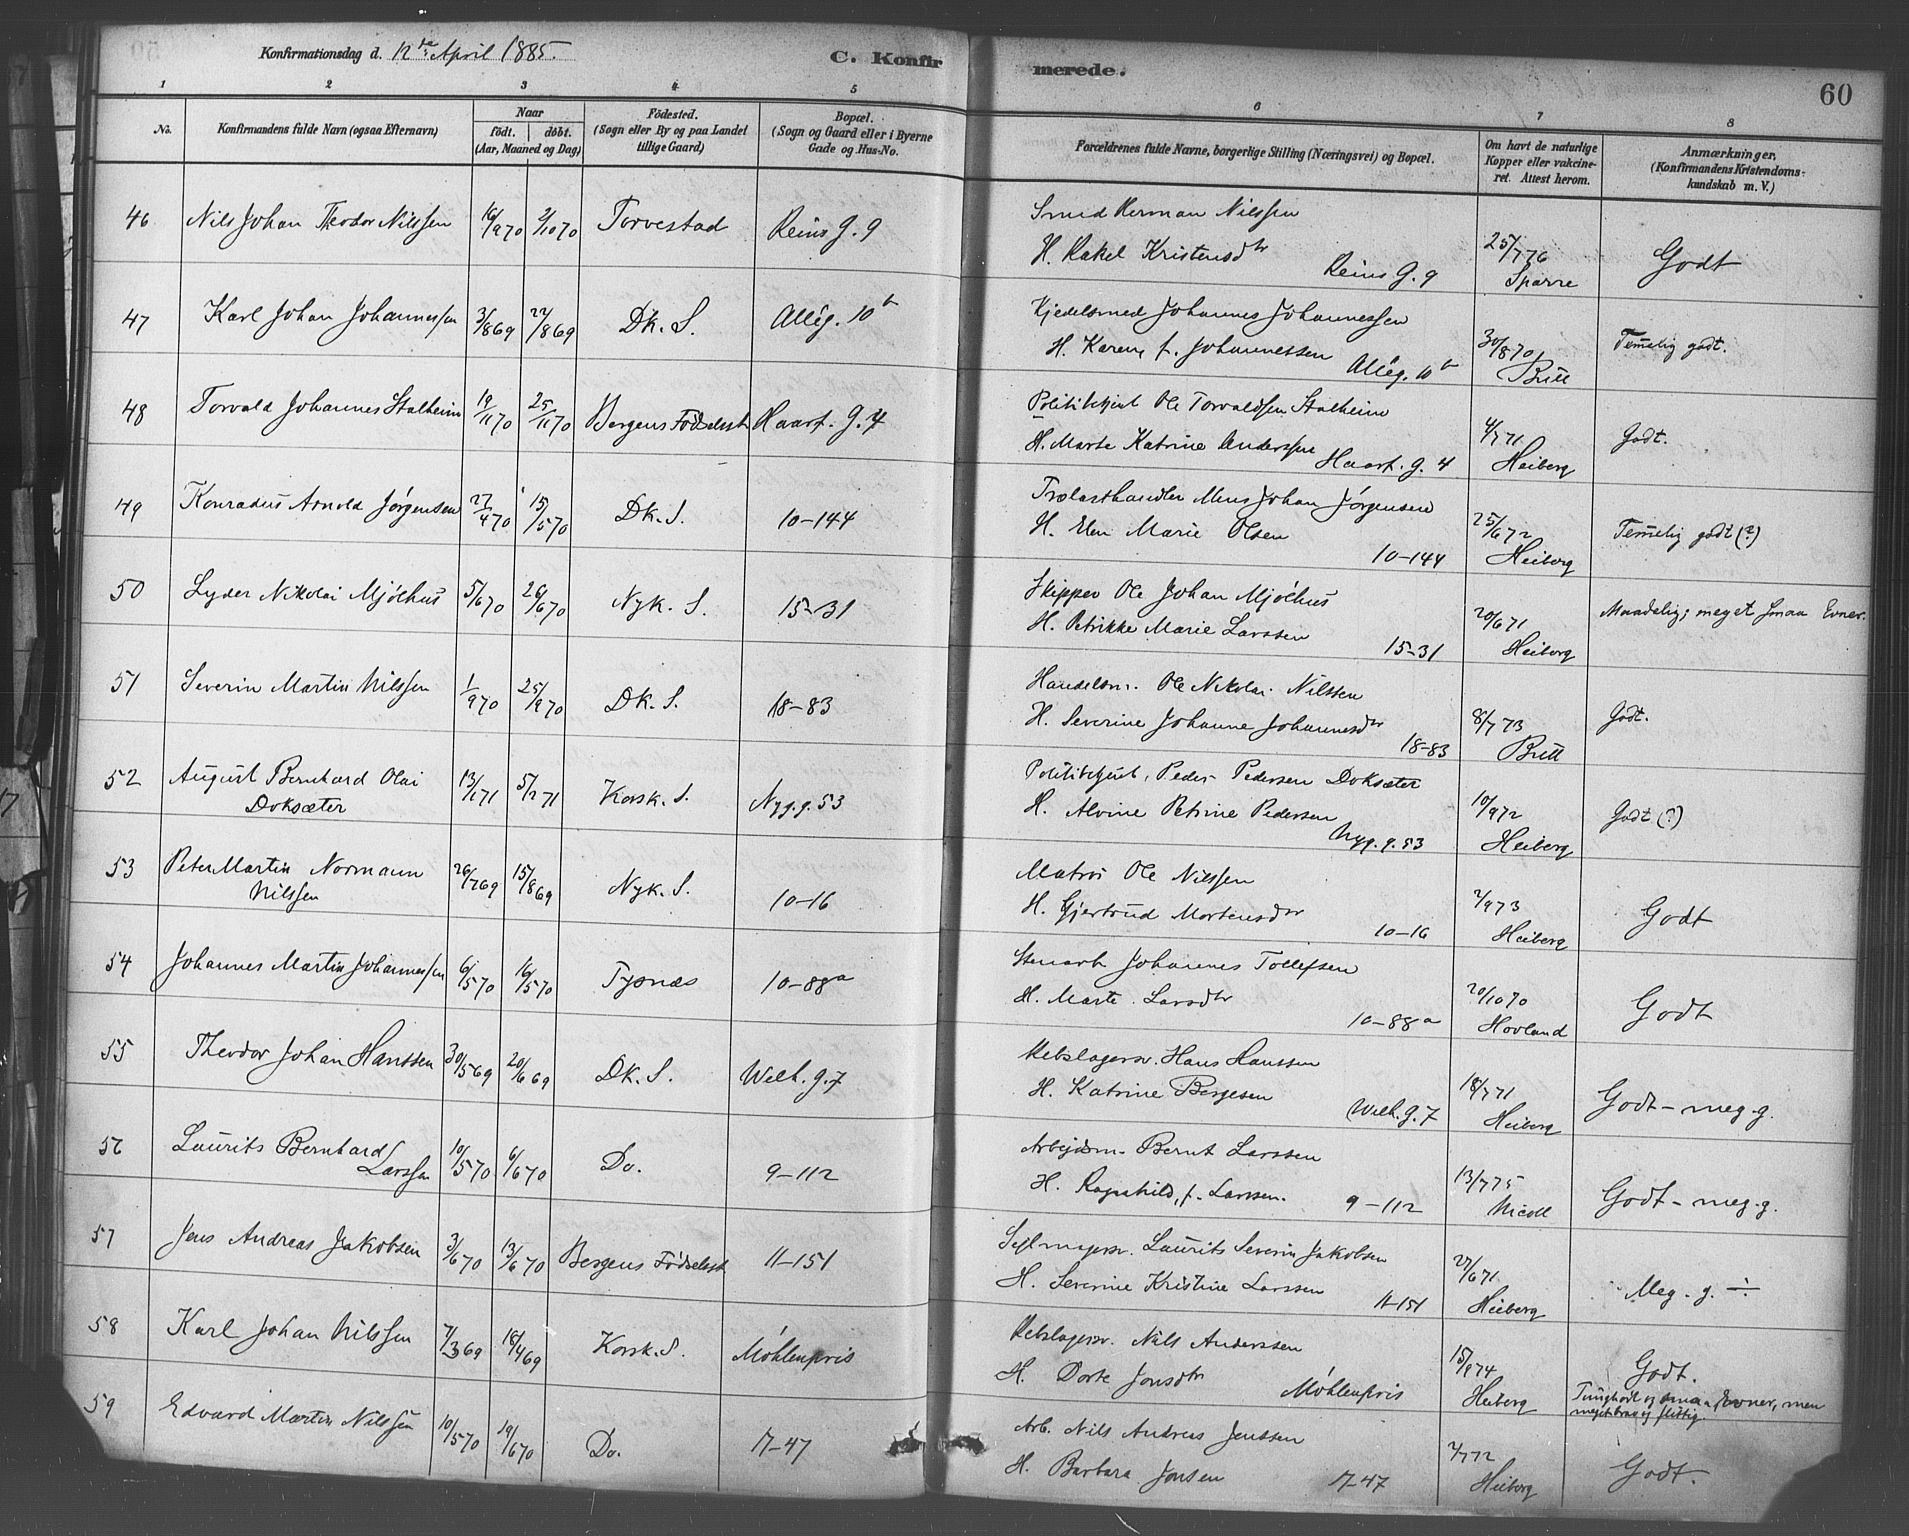 Konfirmationsdag d. 12te April 1885.
C. Konfirmerede.
60
1 2 3 4 5 6 7 8
No.
Konfirmandens fulde Navn (ogsaa Efternavn)
Naar
födt. döbt.
(Aar, Maaned og Dag)
Födested.
(Sogn eller By og paa Landet
tillige Gaard)
Bopæl.
(Sogn og Gaard eller i Byerne
Gade og Hus-No.
Forældrenes fulde Navne, borgerlige Stilling (Næringsvei) og Bopæl.
Om havt de naturlige
Kopper eller vakcine-
ret. Attest herom.
Anmærkninger.
(Konfirmandens Kristendoms-
kundskab m. V.)
46 Nils Johan Theodor Nilssen 16/9 70 2/10 70 Torvestad Reins G. 9 Smed Herman Nilssen
H. Rakel Kristensdtr Reins G. 9 25/7 76 Sparre Godt
47 Karl Johan Johannessen 3/8 69 22/8 69 Dk. S. Allég. 10b Kjedelsmed Johannes Johannessen
H. Karen f. Johannessen Allég. 10b 30/8 70 Bull Temelig godt.
48 Torvald Johannes Stalheim 19/11 70 25/11 70 Bergens Födselsst Haarf. G. 4 Politibetjent Ole Torvaldsen Stalheim
H. Marte Katrine Anderssen Haarf. G. 4 4/7 71 Heiberg Godt.
49 Konradus Arnold Jørgensen 27/4 70 15/5 70 Dk. S. 10-144 Trælasthandler Mons Johan Jörgensen
H. Elen Marie Olsen 10-144 25/6 72 Heiberg Temelig godt (?)
50 Lyder Nikolai Mjölhus 5/6 70 26/6 70 Nyk. S. 15-31 Skipper Ole Johan Mjölhus
H. Petrikke Marie Larssen 15-31 20/6 71 Heiberg Maadelig; meget smaa Evner.
51 Severin Martin Nilssen 1/9 70 25/9 70 Dk. S. 18-83 Handelsm. Ole Nikolai Nilssen
H. Severine Johanne Johannesdtr 18-83 8/7 73 Bull Godt.
52 August Bernhard Olai
Doksæter 13/1 71 5/2 71 Korsk. S. Nyg. g. 53 Politibetjent, Peder Pedersen Doksæter
H. Alvine Petrine Pedersen Nyg. g. 53 10/9 72 Heiberg Godt (?)
53 Peter Martin Normann
Nilssen 26/7 69 15/8 69 Nyk. S. 10-16 Matros Ole Nilssen
H. Gjertrud Mortensdtr 10-16 2/9 73 Heiberg Godt
54 Johannes Martin Johannessen 6/5 70 16/5 70 Tysnæs 10-88a Stenarb Johannes Tollefsen
H. Marte Larsdtr 10-88a 20/10 70 Hovland Godt
55 Theodor Johan Hanssen 30/5 69 20/6 69 Dk. S. Welh. g. 7 Rebslagersv. Hans Hanssen
H. Katrine Børgesen Welh. g. 7 18/7 71 Heiberg Godt - meg. g.
56 Laurits Bernhard
Larssen 10/5 70 6/6 70 Do. 9-112 Arbejdsm. Bernt Larssen
H. Ragnhild, f. Larssen. 9-112 13/7 75 Nicoll Godt - meg. g.
57 Jens Andreas Jakobsen 3/6 70 13/6 70 Bergens Födselsst 11-151 Sejlmagersv. Laurits Severin Jakobsen
H. Severine Kristine Larssen 11-151 27/6 71 Heiberg Meg. g. ÷
58 Karl Johan Nilssen 7/3 69 18/4 69 Korsk. S. Möhlenpris Rebslagersv. Nils Anderssen
H. Dorte Jonsdtr Möhlenpris 15/9 74 Heiberg Godt.
Tunghørt og smaa Evner, men
meget brav og flittig.
59 Edvard Martin Nilssen 10/5 70 19/6 70 Do. 17-47 Arb. Nils Andreas Jenssen
H. Barbara Jonsen 17-47 2/7 72 Heiberg Godt.